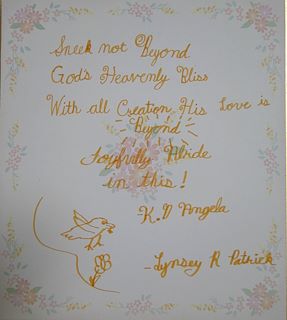 Sneek not Beyond
God's Heavenly Bliss
With all Creation His Love is
Beyond
Joyfully Abide
in this!
K.D Angela
- Lynsey R Patrick